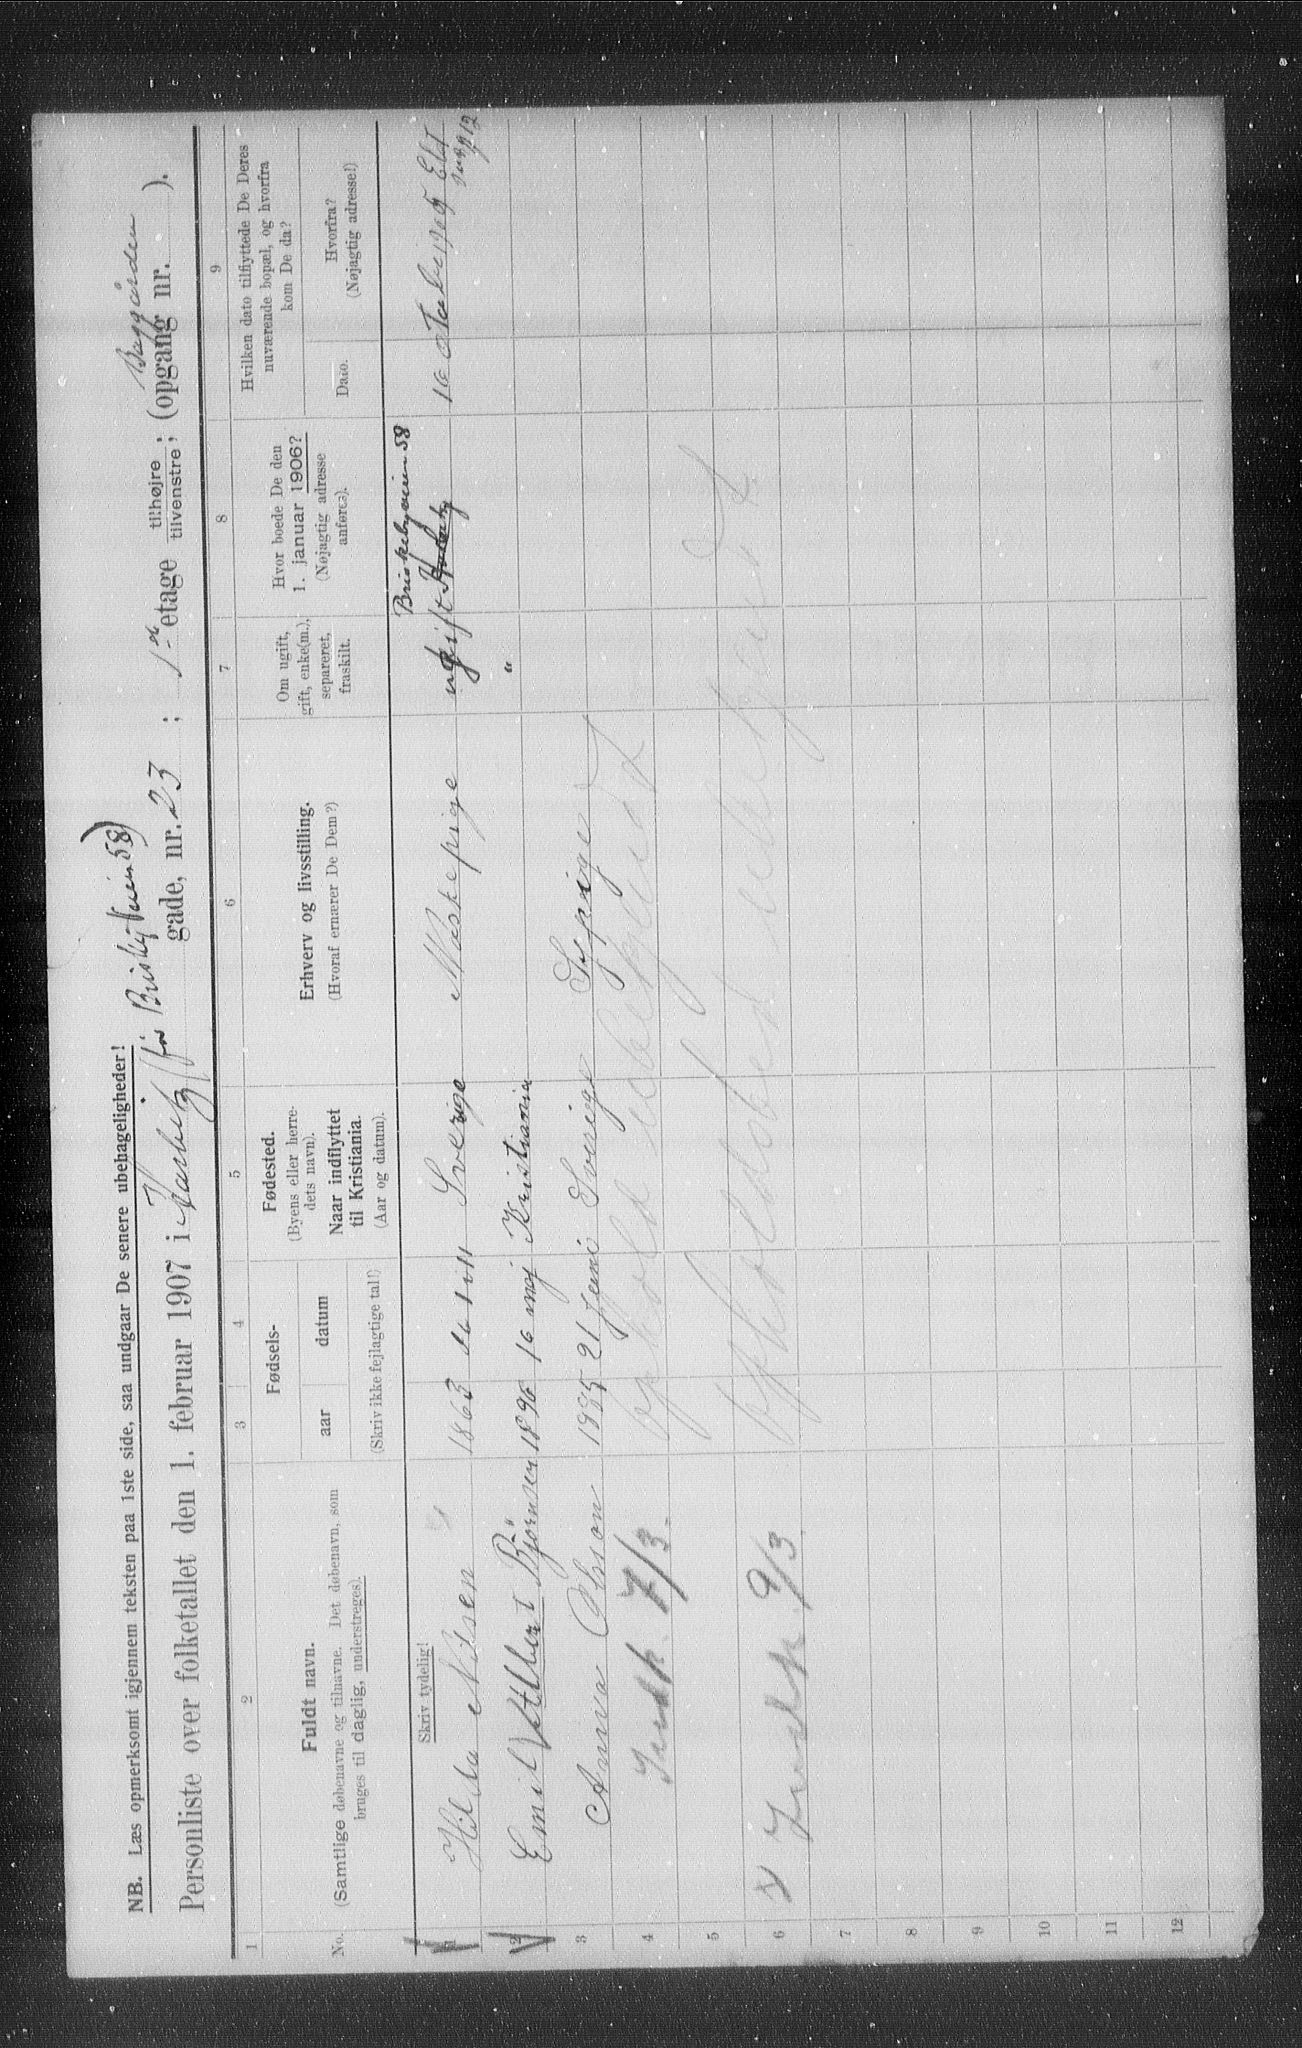 NB. Læs opmerksomt igjennem teksten paa 1ste side, saa undgaar De senere ubehageligheder!
Personliste over folketallet den 1. februar 1907 i Harbitz (før Briskebyveien 58) gade, nr. 23 ; 1ste etage tilhøjre ; tilvenstre; (opgang nr. Baggården ).
1 2 3 4 5 6 7 8 9
No.
Fuldt navn.
(Samtlige døbenavne og tilnavne. Det døbenavn, som
bruges til daglig, understreges).
Fødsels-
aar datum
(Skriv ikke fejlagtige tal!)
Fødested.
(Byens eller herre-
dets navn).
Naar indflyttet
til Kristiania.
(Aar og datum).
Erhverv og livsstilling.
(Hvoraf ernærer De Dem?)
Om ugift,
gift, enke(m.),
separeret,
fraskilt.
Hvor boede De den
1. januar 1906?
(Nøjagtig adresse
anføres).
Hvilken dato tilflyttede De Deres
nuværende bopæl, og hvorfra
kom De da?
Dato.
Hvorfra?
(Nøjagtig adresse!)
Skriv tydelig!
Briskebyveien 58
1 Hilda Nilsen 1863 Sverige Waskepige ugift 16
2 Emil Albert Björnsen 1896 16 maj Kristiania "
3 Anna Olsson 1885 21 Juni Sverige Sypige
4 7/3. opholdt ubekjendt
5
V 9/3 opholdsted ubekjendt
6
7
8
9
10
11
12